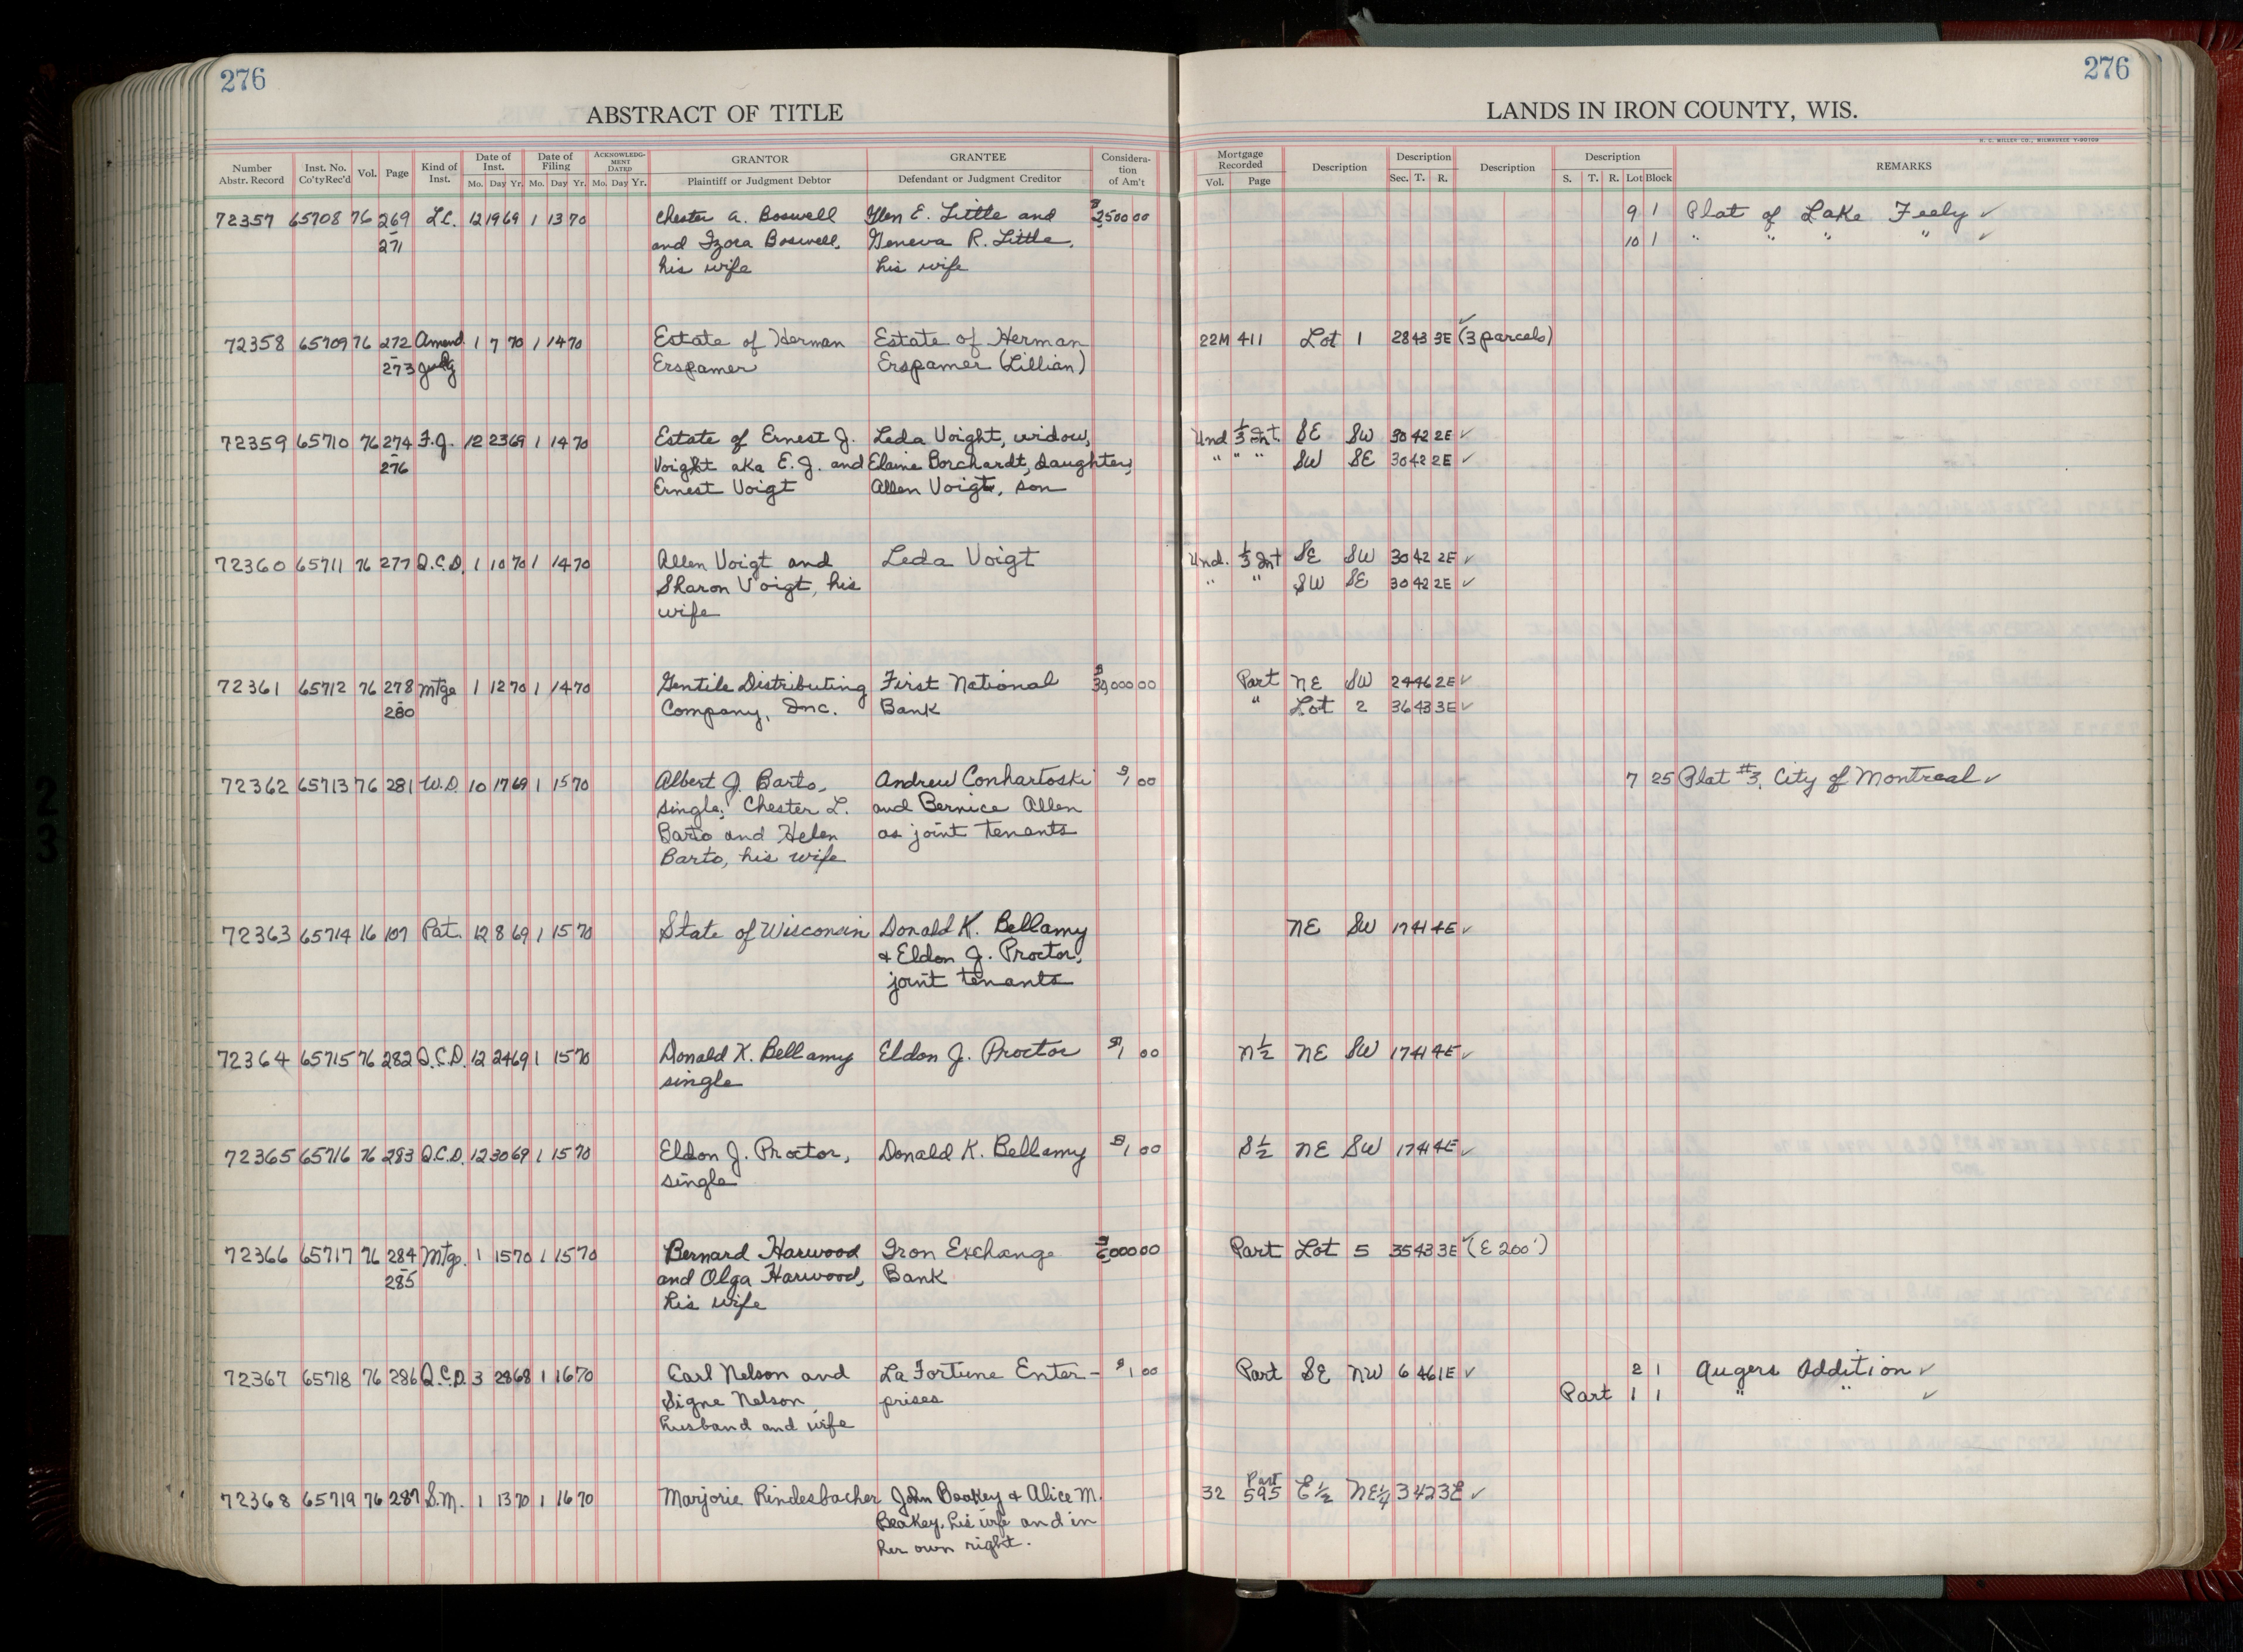 276
276
ABSTRACT OF TITLE
LANDS IN IRON COUNTY, WIS.
H. C. MILLER CO., MILWAUKEE
Number Abstr. Record | Inst. No. Co'ty Rec'd | Vol. | Page | Kind of Inst. | Date of Inst. Mo. Day Yr. | Date of Filing Mo. Day Yr. | ACKNOWLEDGMENT DATED Mo. Day Yr. | GRANTOR Plaintiff or Judgment Debtor | GRANTEE Defendant or Judgment Creditor | Consideration of Am't | Mortgage Recorded Vol. Page | Description | Description Sec. T. R. | Description | Description S. T. R. Lot Block | REMARKS
72357 65708 76 269 L.C. 12 19 69 1 13 70 Chester A. Boswell Glen E. Little and $2500 00 9 1 Plat of Lake Feely ✓
- 271 and Izora Boswell, Geneva R. Little, 10 1 " " " " ✓
his wife his wife
72358 65709 76 272 Amend. 1 7 70 1 14 70 Estate of Herman Estate of Herman 22M 411 Lot 1 28 43 3E ✓ (3 parcels)
- 273 Erspamer Erspamer (Lillian)
72359 65710 76 274 F.J. 12 23 69 1 14 70 Estate of Ernest J. Leda Voight, widow, Und 1/3 Int. SE SW 30 42 2E ✓
- 276 Voight aka E. J. and Elaine Borchardt, daughter, " " " SW SE 30 42 2E ✓
Ernest Voigt Allen Voigt, son
72360 65711 76 277 Q.C.D. 1 10 70 1 14 70 Allen Voigt and Leda Voigt Und. 1/3 Int SE SW 30 42 2E ✓
Sharon Voigt, his " " SW SE 30 42 2E ✓
wife
72361 65712 76 278 Mtge 1 12 70 1 14 70 Gentile Distributing First National $30,000 00 Part NE SW 24 46 2E ✓
- 280 Company, Inc. Bank " Lot 2 36 43 3E ✓
72362 65713 76 281 W.D. 10 17 69 1 15 70 Albert J. Barto, Andrew Conhartoski $1 00 7 25 Plat #3, City of Montreal ✓
single; Chester L. and Bernice Allen
Barto and Helen as joint tenants
Barto, his wife
72363 65714 16 107 Pat. 12 8 69 1 15 70 State of Wisconsin Donald K. Bellamy NE SW 17 41 4E ✓
& Eldon J. Proctor,
joint tenants
72364 65715 76 282 Q.C.D. 12 24 69 1 15 70 Donald K. Bellamy Eldon J. Proctor $1 00 N½ NE SW 17 41 4E ✓
single
72365 65716 76 283 Q.C.D. 12 30 69 1 15 70 Eldon J. Proctor, Donald K. Bellamy $1 00 S½ NE SW 17 41 4E ✓
single
72366 65717 76 284 Mtge. 1 15 70 1 15 70 Bernard Harwood Iron Exchange $6000 00 Part Lot 5 35 43 3E ✓ (E 200')
- 285 and Olga Harwood, Bank
his wife
72367 65718 76 286 Q.C.D. 3 28 68 1 16 70 Carl Nelson and La Fortune Enter- $1 00 Part SE NW 6 46 1E ✓ 2 1 Augers Addition ✓
Signe Nelson, prises Part 1 1 " " ✓
husband and wife
72368 65719 76 287 S.M. 1 13 70 1 16 70 Marjorie Rindesbacher John Beakey & Alice M. 32 Part 595 E½ NE¼ 3 42 3E ✓
Beakey, his wife and in
her own right.